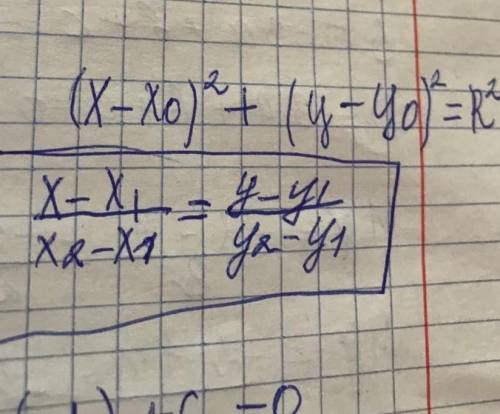 (x - x0)² + (y - y0)² = R²
x - x1 / x2 - x1 = y - y1 / y2 - y1